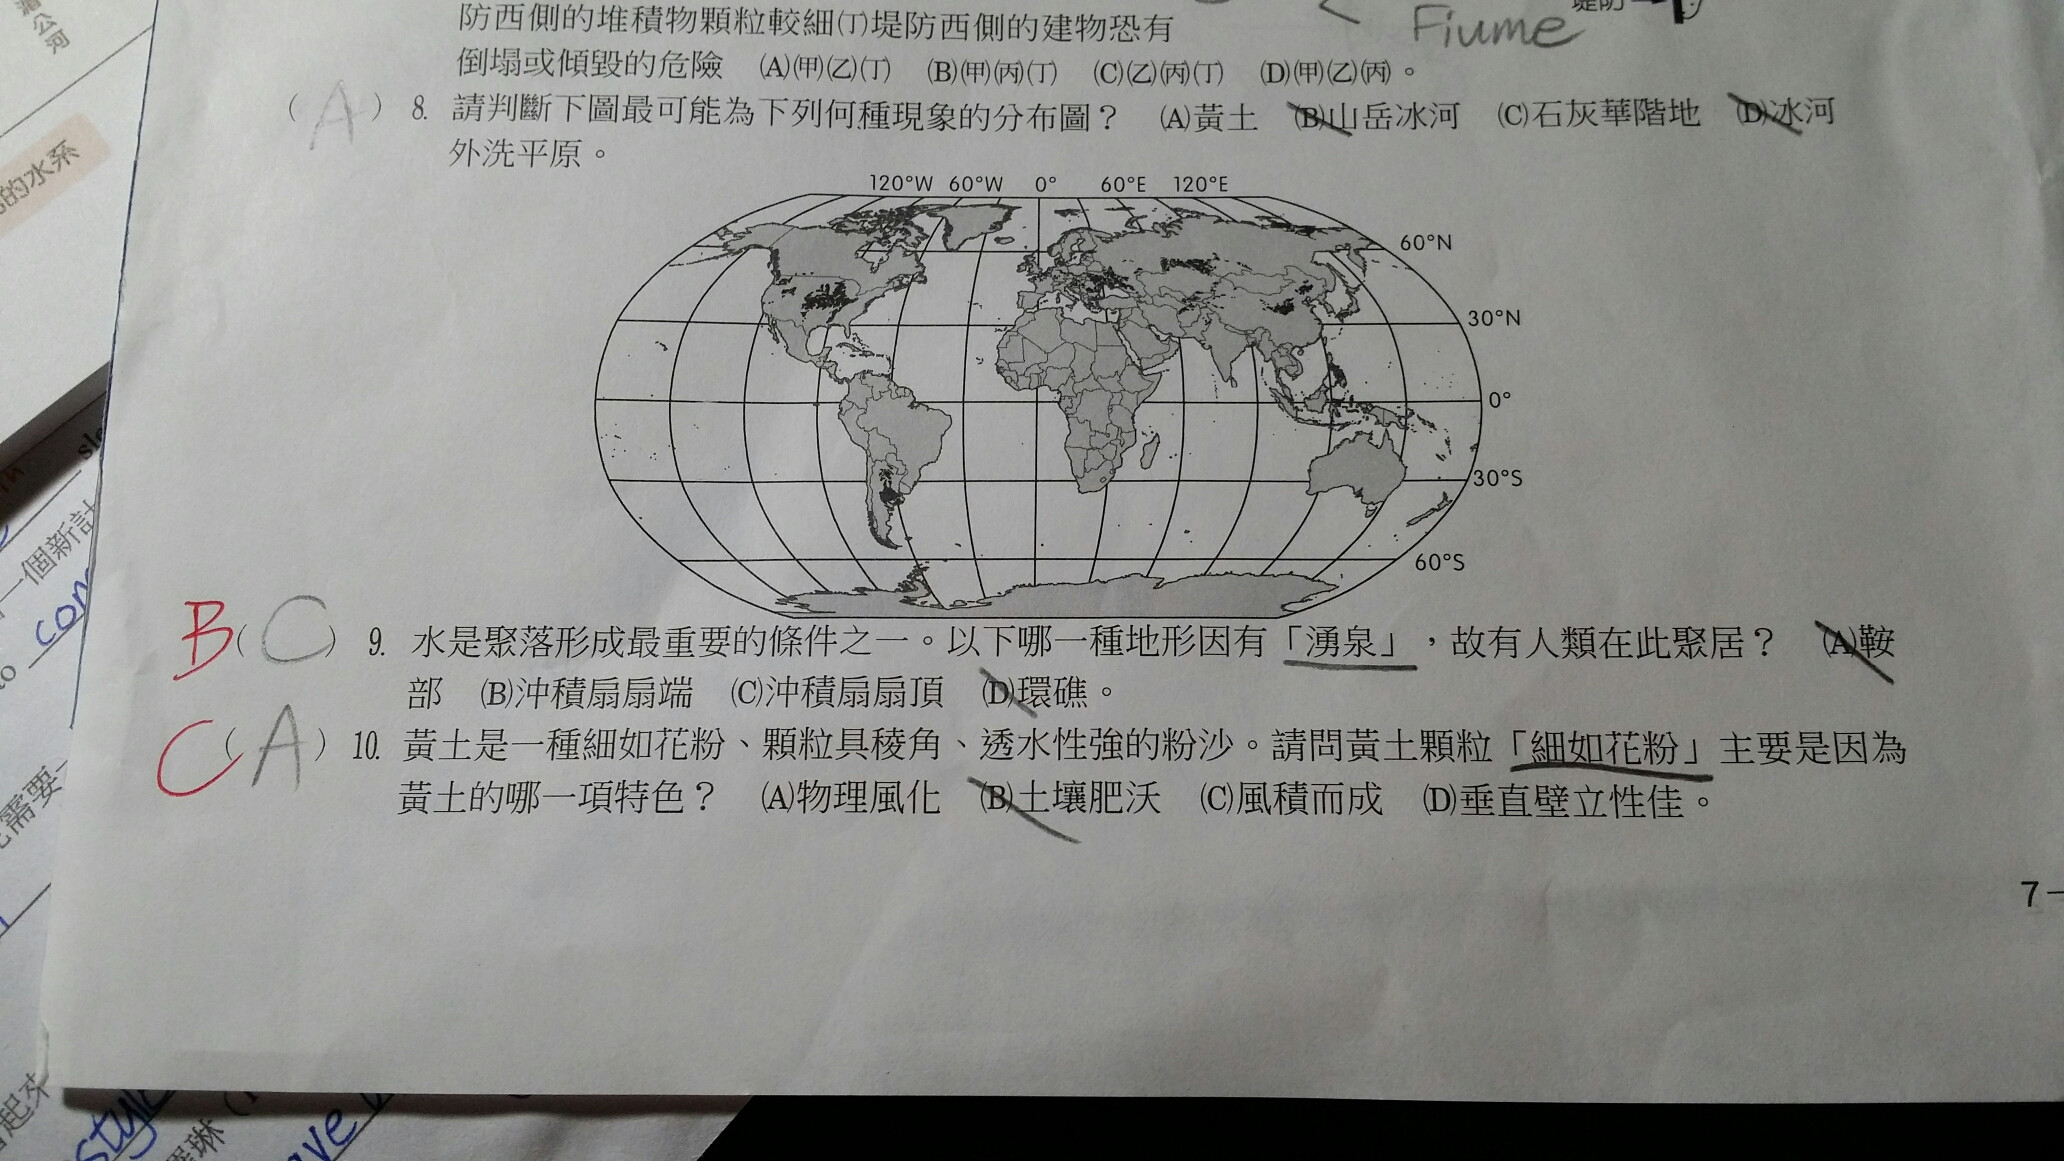 湑公河
的水系
一個新計
to con
needs需要
防西側的堆積物顆粒較細(丁)堤防西側的建物恐有
Fiume
堤防
倒塌或傾毀的危險 (A)(甲)(乙)(丁) (B)(甲)(丙)(丁) (C)(乙)(丙)(丁) (D)(甲)(乙)(丙)。
(A) 8. 請判斷下圖最可能為下列何種現象的分布圖? (A)黃土 (B)山岳冰河 (C)石灰華階地 (D)冰河
外洗平原。
120°W 60°W 0° 60°E 120°E
60°N
30°N
0°
30°S
60°S
B(C) 9. 水是聚落形成最重要的條件之一。以下哪一種地形因有「湧泉」,故有人類在此聚居? (A)鞍
部 (B)沖積扇扇端 (C)沖積扇扇頂 (D)環礁。
C(A) 10. 黃土是一種細如花粉、顆粒具稜角、透水性強的粉沙。請問黃土顆粒「細如花粉」主要是因為
黃土的哪一項特色? (A)物理風化 (B)土壤肥沃 (C)風積而成 (D)垂直壁立性佳。
7-
style